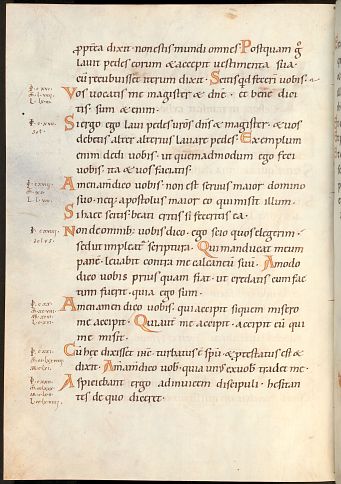 ꝓpterea dixit · non estis mundi omnes · Postquam g̊
lavit pedes eorum & accepit vestimenta sua ·
cu᷒ recubuisset iterum dixit · Scitis qd fecerī vobis ·
Vos vocatis me magister & dn̄e · et bene dici
tis · sum & enim ·
Si ergo ego lavi pedes vr̄os dn̄s & magister · & vos
debetis alter alterius lavare pedes · Exemplum
enim dedi vobis · ut quemadmodum ego feci
vobis · ita & vos faciatis ·
Amen am̄ dico vobis · non est servus maior domino
suo · neq; apostolus maior eo qui misit illum ·
Si haec scitis · beati eritis si feceritis ea ·
Non de omnib; vobis dico · ego scio quos elegerim ·
sed ut impleat᷑ scriptura · Qui manducat mecum
pane᷒ · levabit contra me calcaneū suū · Amodo
dico vobis priusquam fiat · ut credatis cum fac
tum fuerit · quia ego sum ·
Amen amen dico vobis · qui accipit siquem misero
me accipit · Qui aut̄ me accipit · accipit eū qui
me misit ·
Cū hec dixisset ih̄c turbatus ē sp̄u · & ꝓtestatus est &
dixit · Am̄ am̄ dico vob᷒ · quia un᷒ ex vob᷒ tradet me ·
Aspiciebant ergo ad invicem discipuli · hesitan
tes de quo diceret ·